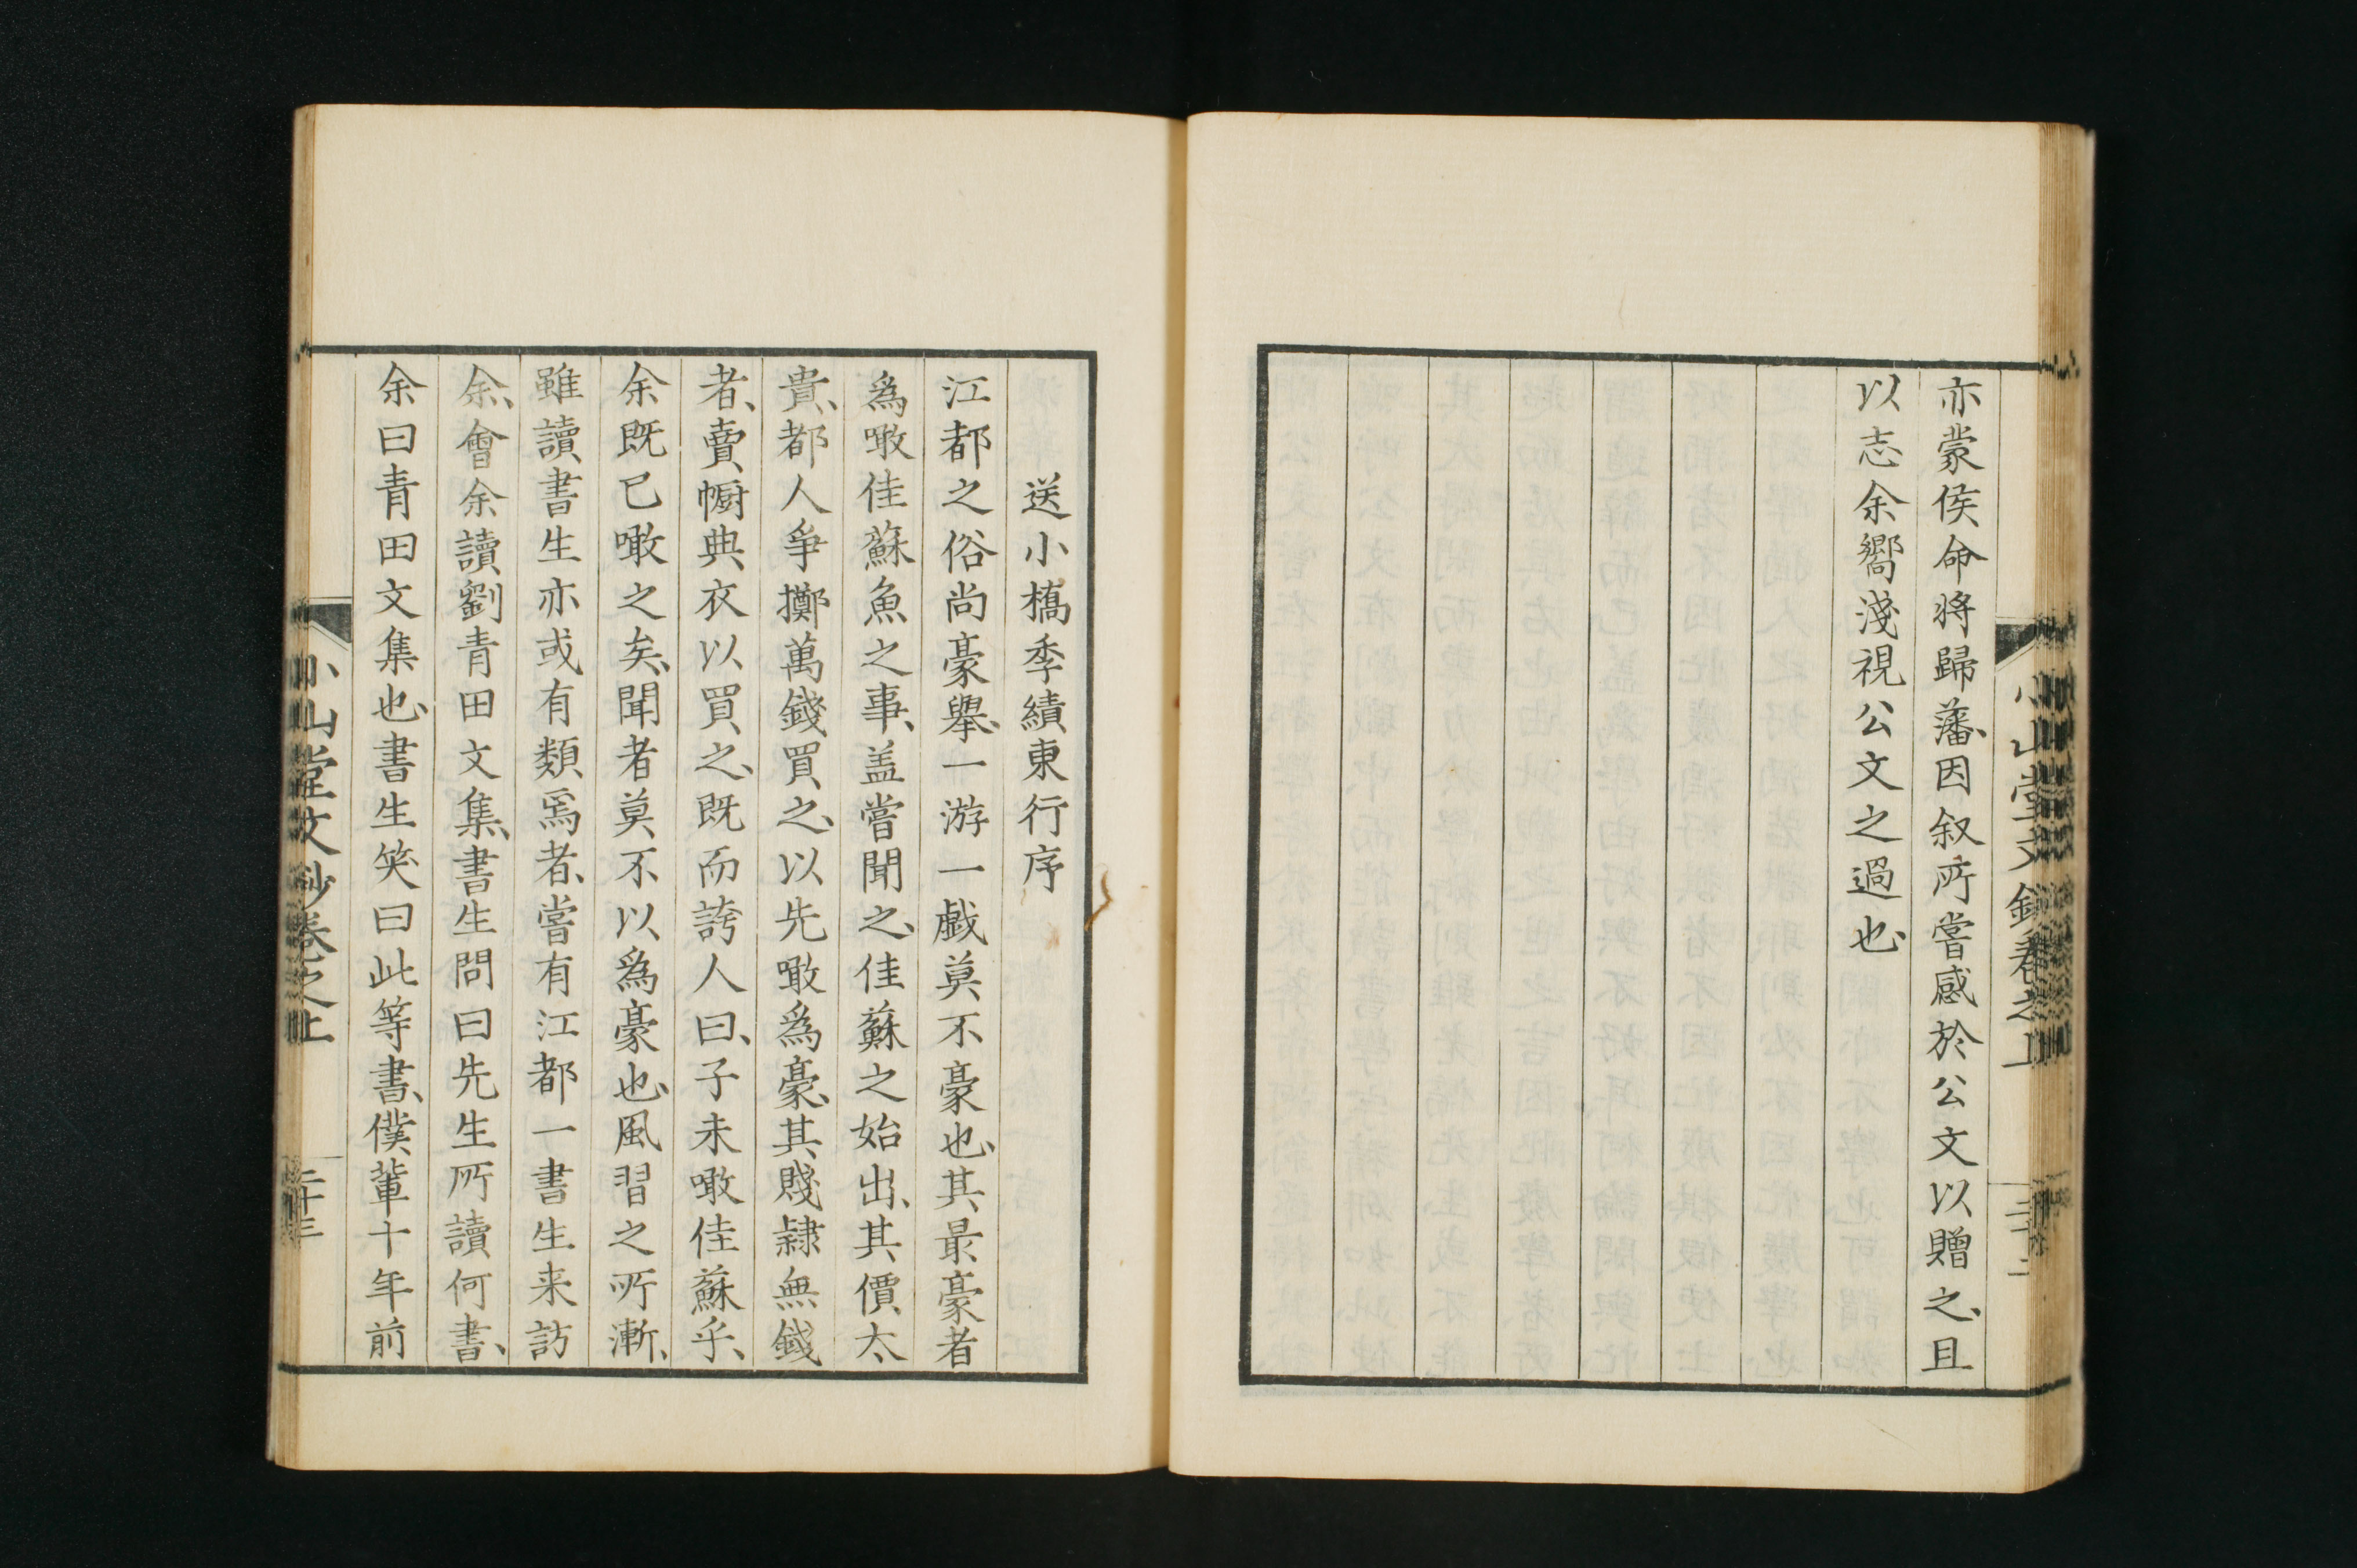 亦蒙侯命將歸藩、因叙所嘗感於公文以贈之、且
以志余嚮淺視公文之過也、
小山堂文鈔卷之上
送小橋季績東行序
江都之俗尚豪舉、一游一戲莫不豪也、其最豪者
爲噉佳蘇魚之事、盖嘗聞之、佳蘇之始出、其價太
貴、都人爭擲萬錢買之、以先噉爲豪、其賤隷無錢
者、賣幮典衣以買之、既而誇人曰、子未噉佳蘇乎、
余既已噉之矣、聞者莫不以爲豪也、風習之所漸、
雖讀書生亦或有類焉者、嘗有江都一書生来訪
余、會余讀劉青田文集、書生問曰先生所讀何書、
余曰青田文集也、書生笑曰此等書、僕輩十年前
小山堂文鈔卷之上
二十三